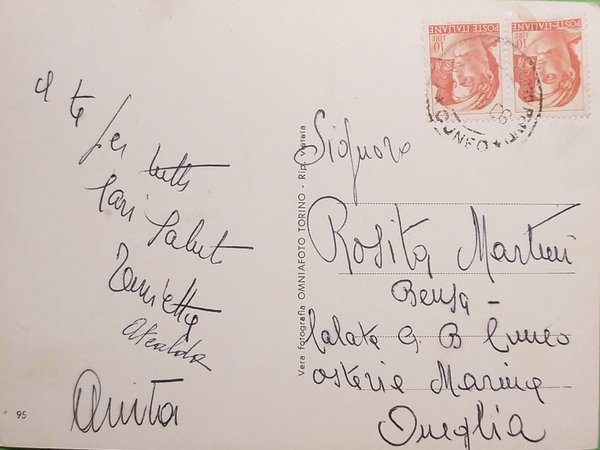 a te per tutti
Cari Saluti
Anita
95
Vera fotografia OMNIAFOTO TORINO - Rip. vietata
POSTE ITALIANE
LIRE
10
POSTE ITALIANE
LIRE
10
Signora
Rosita Martini
Bensa -
Calata G. B Cuneo
osteria Marina
Oneglia